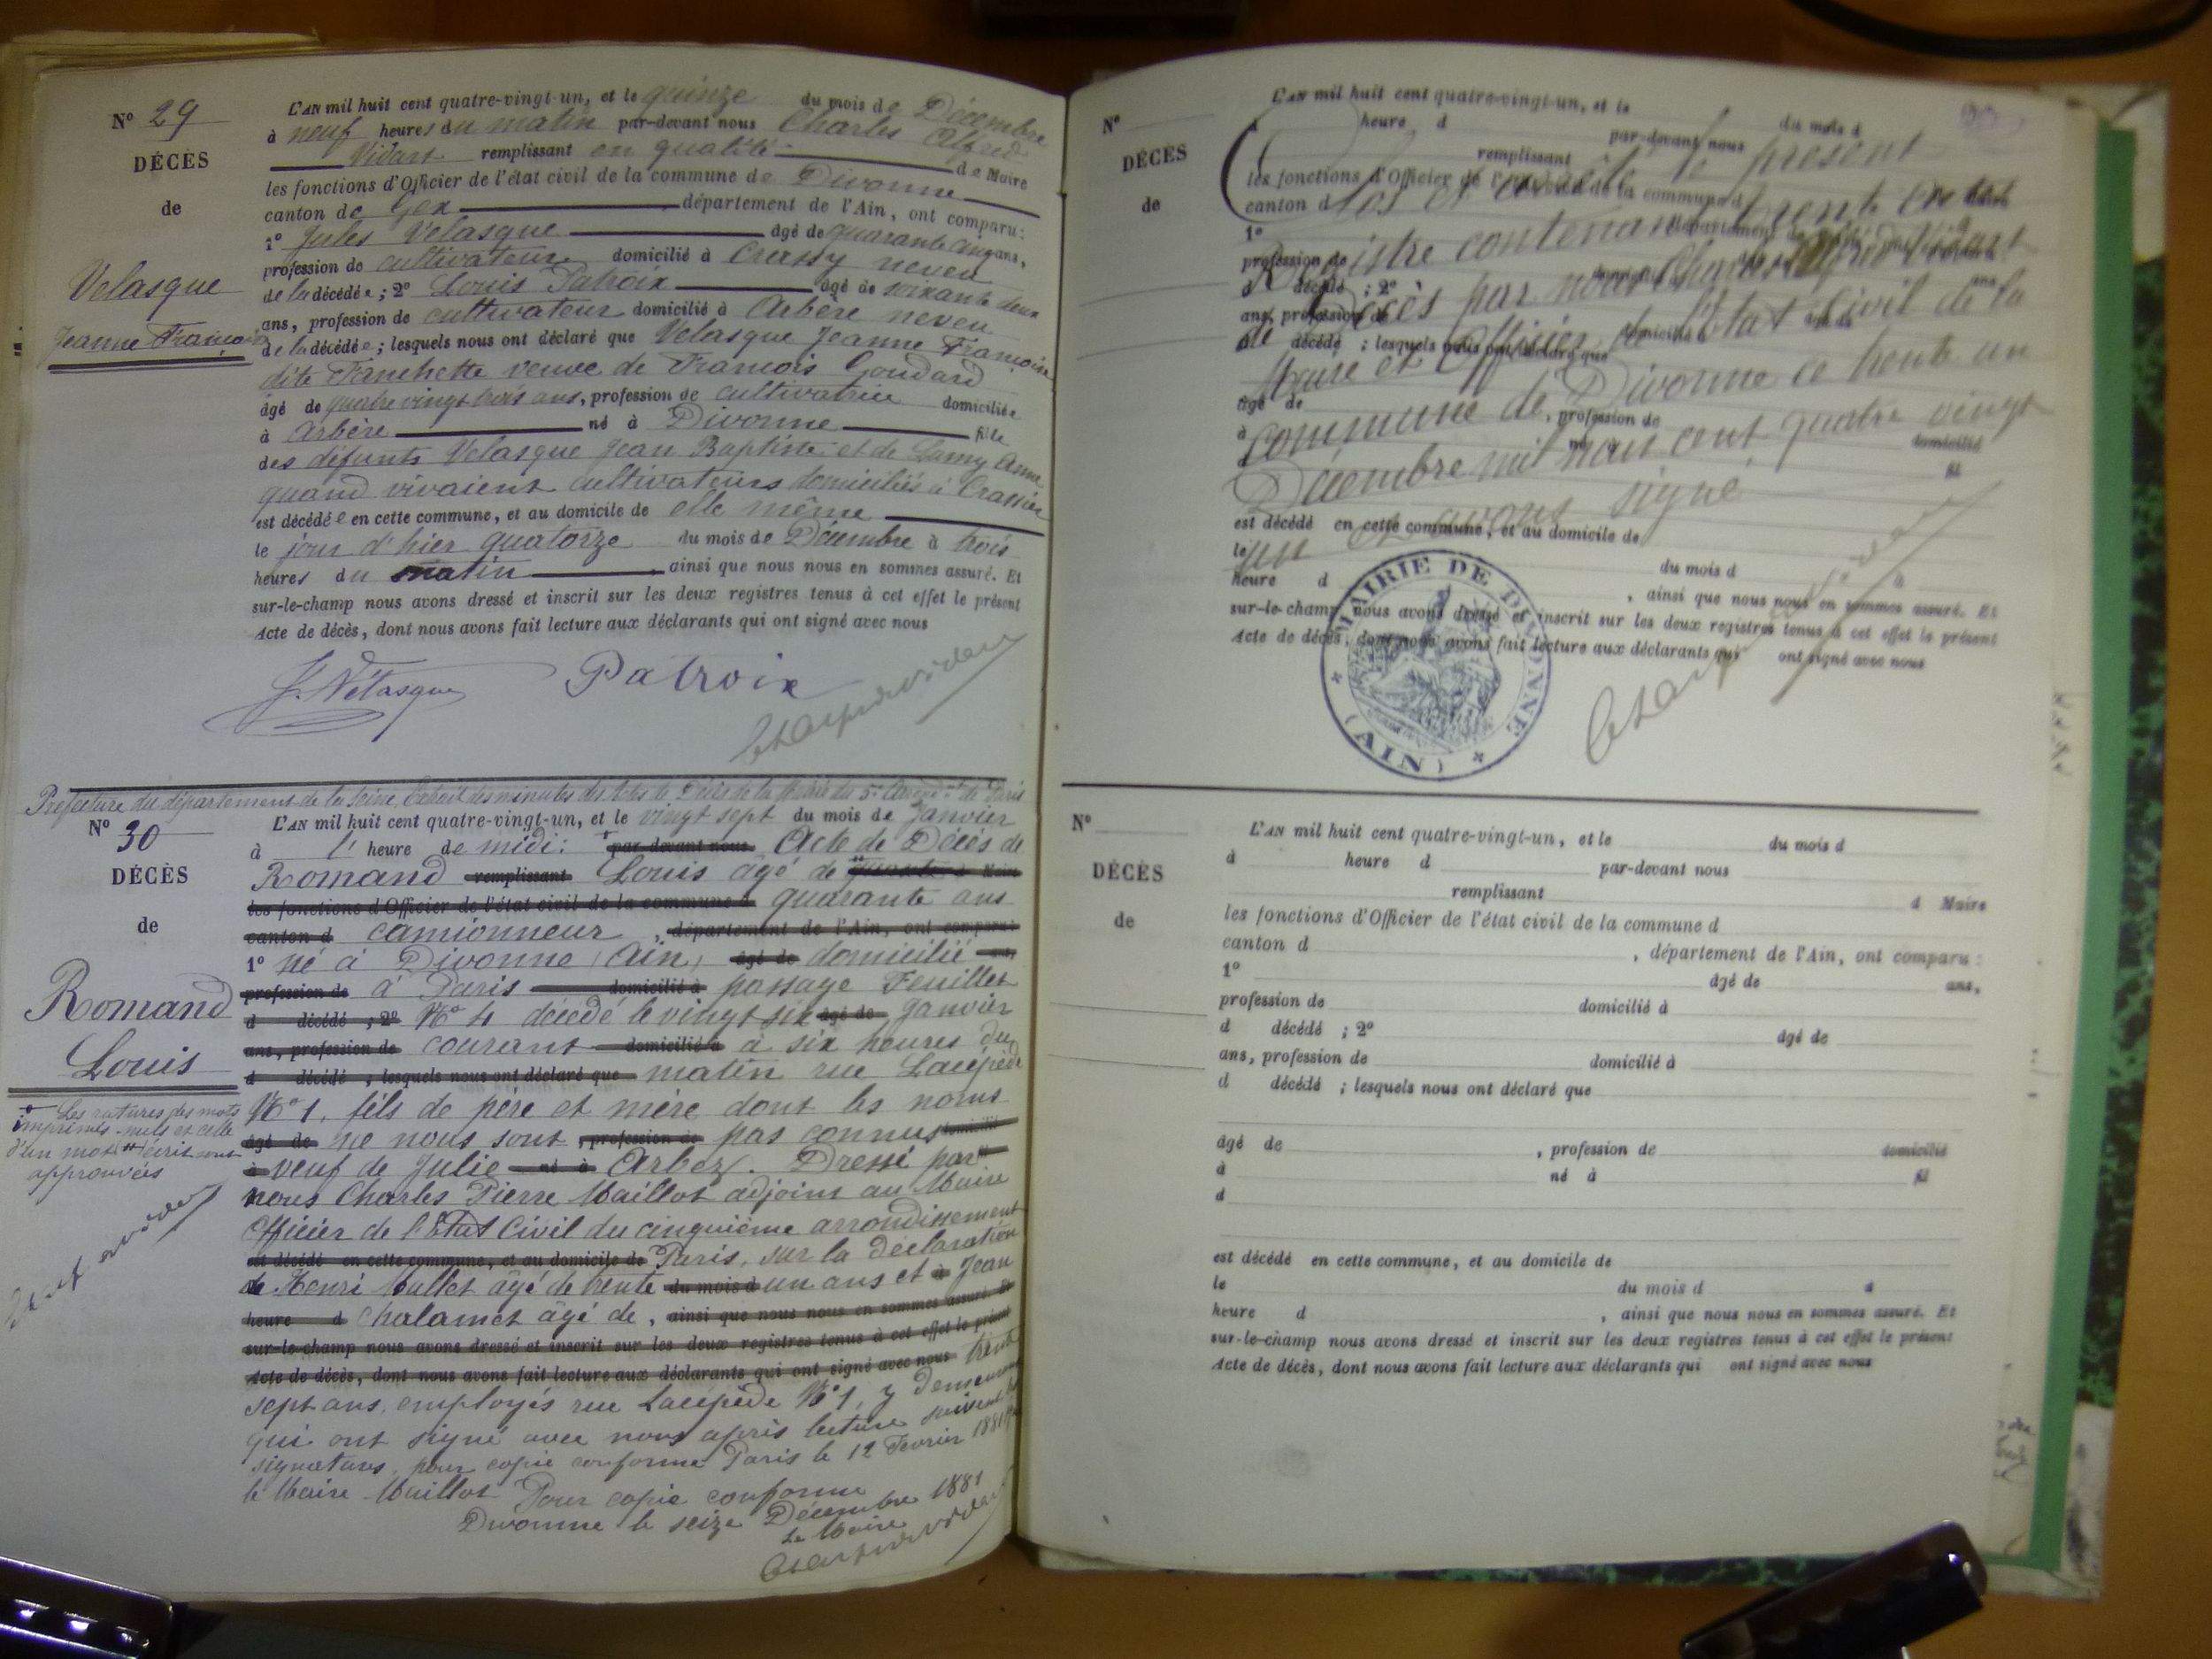 N° 29
DÉCÈS
de
Velasque
Jeanne Françoise
L'AN mil huit cent quatre-vingt-un, et le quinze du mois de Décembre
à neuf heures du matin par-devant nous Charles Alfred
Vidart remplissant en qualité de Maire
les fonctions d'Officier de l'état civil de la commune de Divonne
canton de Gex département de l'Ain, ont comparu:
1° Jules Velasque âgé de quarante cinq ans,
profession de cultivateur domicilié à Crassy neveu
de la décédée; 2° Louis Patroix âgé de soixante deux
ans, profession de cultivateur domicilié à Arbère neveu
de la décédée; lesquels nous ont déclaré que Velasque Jeanne Françoise
dite Fanchette veuve de François Goudard
âgé de quatre vingt trois ans, profession de cultivatrice domiciliée
à Arbère né à Divonne fille
des défunts Velasque Jean Baptiste et de Lamy Anne
quand vivaient cultivateurs domiciliés à Crassier
est décédée en cette commune, et au domicile de elle même
le jour d'hier quatorze du mois de Décembre à trois
heures du matin, ainsi que nous nous en sommes assuré. Et
sur-le-champ nous avons dressé et inscrit sur les deux registres tenus à cet effet le présent
Acte de décès, dont nous avons fait lecture aux déclarants qui ont signé avec nous
J. Vélasque Patroix
Préfecture du département de la Seine, Extrait des minutes des actes de Décès de la Mairie du 5e Arrondt de Paris
N° 30
DÉCÈS
de
Romand
Louis
Les ratures des mots
imprimés nuls et celle
d'un mot écrit sont
approuvées
L'AN mil huit cent quatre-vingt-un, et le vingt sept du mois de Janvier
à 1 heure de midi: par-devant nous Acte de Décès de
Romand remplissant Louis âgé de d Maire
les fonctions d'Officier de l'état civil de la commune d quarante ans
canton d camionneur, département de l'Ain, ont comparu
1° né à Divonne (Ain) âgé de domicilié ans
profession de à Paris domicilié à passage Feuillet
d décédé; 2° N° 4 décédé le vingt six âgé de Janvier
ans, profession de courant domicilié à à six heures du
d décédé; lesquels nous ont déclaré que matin rue Lacépède
N° 1, fils de père et mère dont les noms
âgé de ne nous sont, profession de pas connus domicilié
à veuf de Julie né à Arbez. Dressé par
nous Charles Pierre Maillot adjoint au Maire
Officier de l'État Civil du cinquième arrondissement
est décédé en cette commune, et au domicile de Paris, sur la déclaration
de Henri Mullet âgé de trente du mois d un ans et à Jean
heure d Chalamet âgé de, ainsi que nous nous en sommes assuré. Et
sur-le-champ nous avons dressé et inscrit sur les deux registres tenus à cet effet le présent
Acte de décès, dont nous avons fait lecture aux déclarants qui ont signé avec nous trente
sept ans, employés rue Lacépède N° 1, y demeurant
qui ont signé avec nous après lecture suivent les
signatures, pour copie conforme Paris le 12 Février 1881
le Maire Maillot Pour copie conforme
Divonne le seize Décembre 1881
Le Maire
N°
DÉCÈS
de
L'AN mil huit cent quatre-vingt-un, et le du mois d
heure d par-devant nous
remplissant
les fonctions d'Officier de l'état civil de la commune d
canton d département de
1°
profession de
d décédé; 2°
ans, profession de domicilié à
d décédé; lesquels nous ont déclaré que
âgé de, profession de
à né à domicilié
fil
Clos et arrêté le présent
Registre contenant trente actes
Décès par nous Charles Alfred Vidart
Maire et Officier de l'État Civil de la
commune de Divonne ce trente un
Décembre mil huit cent quatre vingt
un et avons signé
est décédé en cette commune, et au domicile de
le du mois d à
heure d, ainsi que nous nous en sommes assuré. Et
sur-le-champ nous avons dressé et inscrit sur les deux registres tenus à cet effet le présent
Acte de décès, dont nous avons fait lecture aux déclarants qui ont signé avec nous
MAIRIE DE DIVONNE
(AIN)
N°
DÉCÈS
de
L'AN mil huit cent quatre-vingt-un, et le du mois d
à heure d par-devant nous
remplissant d Maire
les fonctions d'Officier de l'état civil de la commune d
canton d, département de l'Ain, ont comparu:
1° âgé de ans,
profession de domicilié à
d décédé; 2° âgé de
ans, profession de domicilié à
d décédé; lesquels nous ont déclaré que
âgé de, profession de domicilié
à né à fil
d
est décédé en cette commune, et au domicile de
le du mois d à
heure d, ainsi que nous nous en sommes assuré. Et
sur-le-champ nous avons dressé et inscrit sur les deux registres tenus à cet effet le présent
Acte de décès, dont nous avons fait lecture aux déclarants qui ont signé avec nous